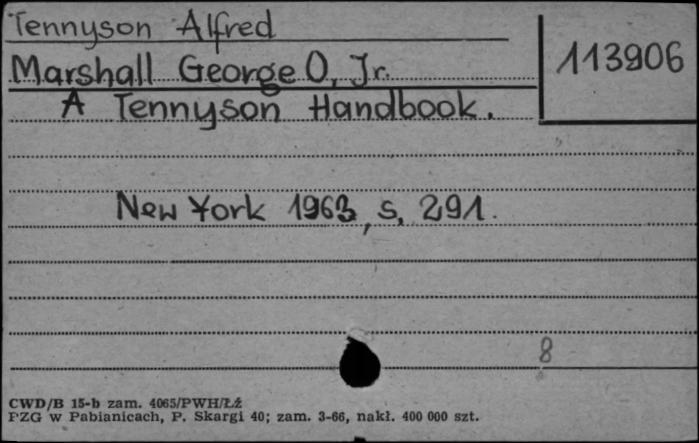 Tennyson Alfred
113906
Marshall George O, Jr.
A Tennyson Handbook.
New York 1963, s, 291.
8
CWD/B 15-b zam. 4065/PWH/Łź
PZG w Pabianicach, P. Skargi 40; zam. 3-66, nakł. 400 000 szt.